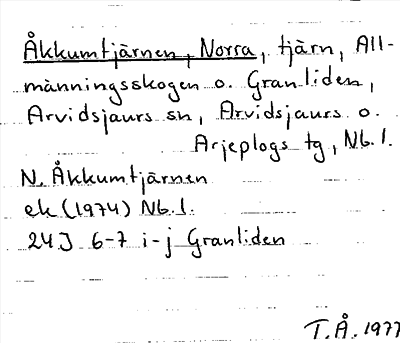 Åkkumtjärnen, Norra, tjärn, All-
männingsskogen o. Granliden,
Arvidsjaurs sn, Arvidsjaurs o.
Arjeplogs tg, Nb. l.
N. Åkkumtjärnen
ek (1974) Nb. l.
24J 6-7 i-j Granliden
T.Å. 1977